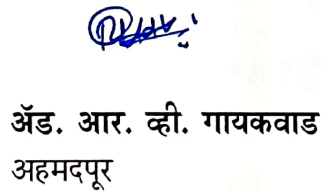 ॲड. आर. व्ही. गायकवाड
अहमदपूर